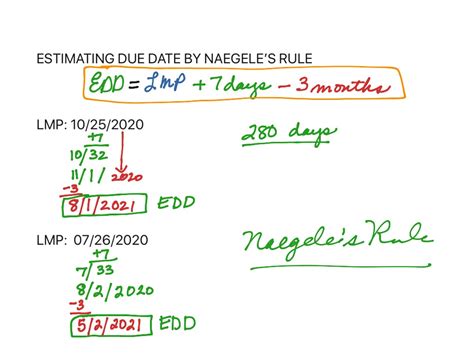 ESTIMATING DUE DATE BY NAEGELE'S RULE
EDD = LMP + 7 days - 3 months
LMP: 10/25/2020
+7
10/32
11/1/2020
-3
8/1/2021 EDD
280 days
LMP: 07/26/2020
+7
7/33
8/2/2020
-3
5/2/2021 EDD
Naegele's Rule